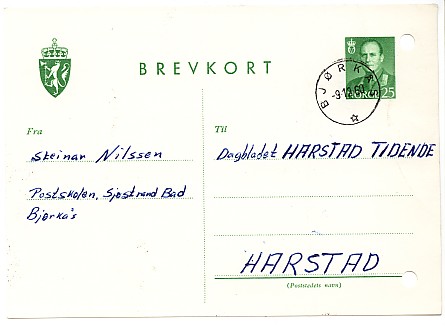 BREVKORT
BJØRKÅS
-9.12.60
NORGE 25
Fra
Til
Steinar Nilssen
Dagbladet HARSTAD TIDENDE
Postskolen, Sjøstrand Bad
Bjørkås
HARSTAD
(Poststedets navn)